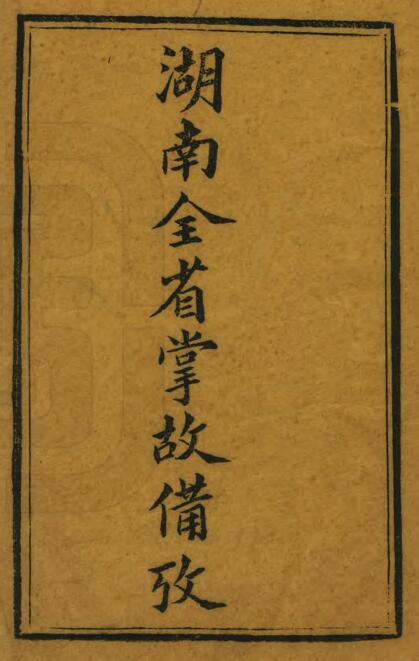 湖南全省掌故備攷